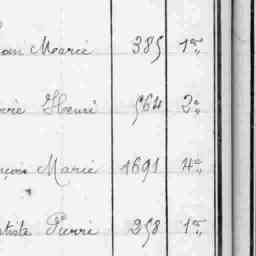 ean Marie 385 1re „
erie Henri 564 2e „
nçois Marie 1691 4e „
ptiste Pierre 258 1re „